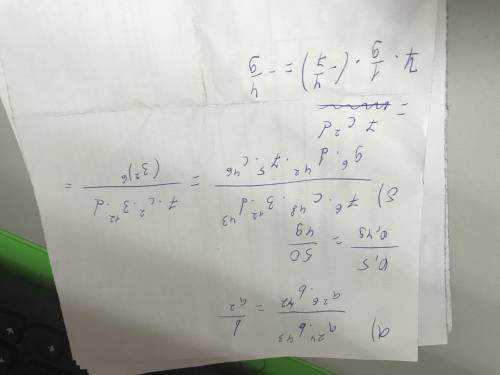 a) a²⁴·b⁴³ / a²⁶·b⁴² = b / a²
0,5 / 0,49 = 50 / 49
б) 7⁶·c⁴⁸·3¹²·d⁴³ / 9⁶·d⁴²·7⁵·c⁴⁶ = 7·c²·3¹²·d / (3²)⁶ =
= 7c²d
7 · 1/9 · (-4/7) = -4/9